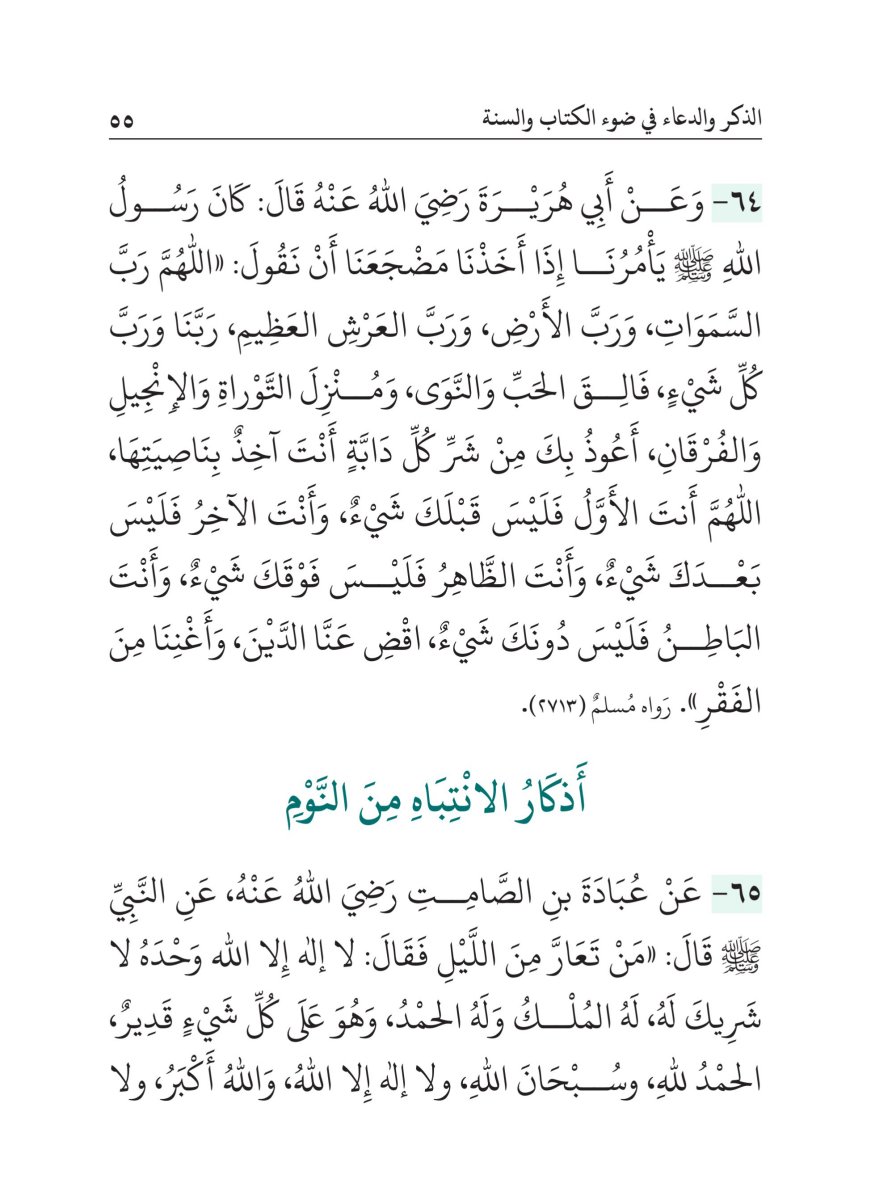 الذكر والدعاء في ضوء الكتاب والسنة ٥٥
٦٤- وَعَـــنْ أَبِي هُرَيْـــرَةَ رَضِيَ اللهُ عَنْهُ قَالَ: كَانَ رَسُـــولُ
اللهِ ﷺ يَأْمُرُنَـــا إِذَا أَخَذْنَا مَضْجَعَنَا أَنْ نَقُولَ: «اللَّهُمَّ رَبَّ
السَّمَوَاتِ، وَرَبَّ الأَرْضِ، وَرَبَّ العَرْشِ العَظِيمِ، رَبَّنَا وَرَبَّ
كُلِّ شَيْءٍ، فَالِـــقَ الحَبِّ وَالنَّوَى، وَمُـــنْزِلَ التَّوْراةِ وَالإِنْجِيلِ
وَالفُرْقَانِ، أَعُوذُ بِكَ مِنْ شَرِّ كُلِّ دَابَّةٍ أَنْتَ آخِذٌ بِنَاصِيَتِهَا،
اللَّهُمَّ أَنتَ الأَوَّلُ فَلَيْسَ قَبْلَكَ شَيْءٌ، وَأَنْتَ الآخِرُ فَلَيْسَ
بَعْـــدَكَ شَيْءٌ، وَأَنْتَ الظَّاهِرُ فَلَيْـــسَ فَوْقَكَ شَيْءٌ، وَأَنْتَ
البَاطِـــنُ فَلَيْسَ دُونَكَ شَيْءٌ، اقْضِ عَنَّا الدَّيْنَ، وَأَغْنِنَا مِنَ
الفَقْرِ». رَواه مُسلمٌ (٢٧١٣).
أَذكَارُ الانْتِبَاهِ مِنَ النَّوْمِ
٦٥- عَنْ عُبَادَةَ بنِ الصَّامِـــتِ رَضِيَ اللهُ عَنْهُ، عَنِ النَّبِيِّ
ﷺ قَالَ: «مَنْ تَعَارَّ مِنَ اللَّيْلِ فَقَالَ: لا إلٰه إلا الله وَحْدَهُ لا
شَرِيكَ لَهُ، لَهُ المُلْـــكُ وَلَهُ الحمْدُ، وَهُوَ عَلَى كُلِّ شَيْءٍ قَدِيرٌ،
الحمْدُ للهِ، وسُـــبْحَانَ اللهِ، ولا إلٰه إِلا اللهُ، وَاللهُ أَكْبَرُ، ولا